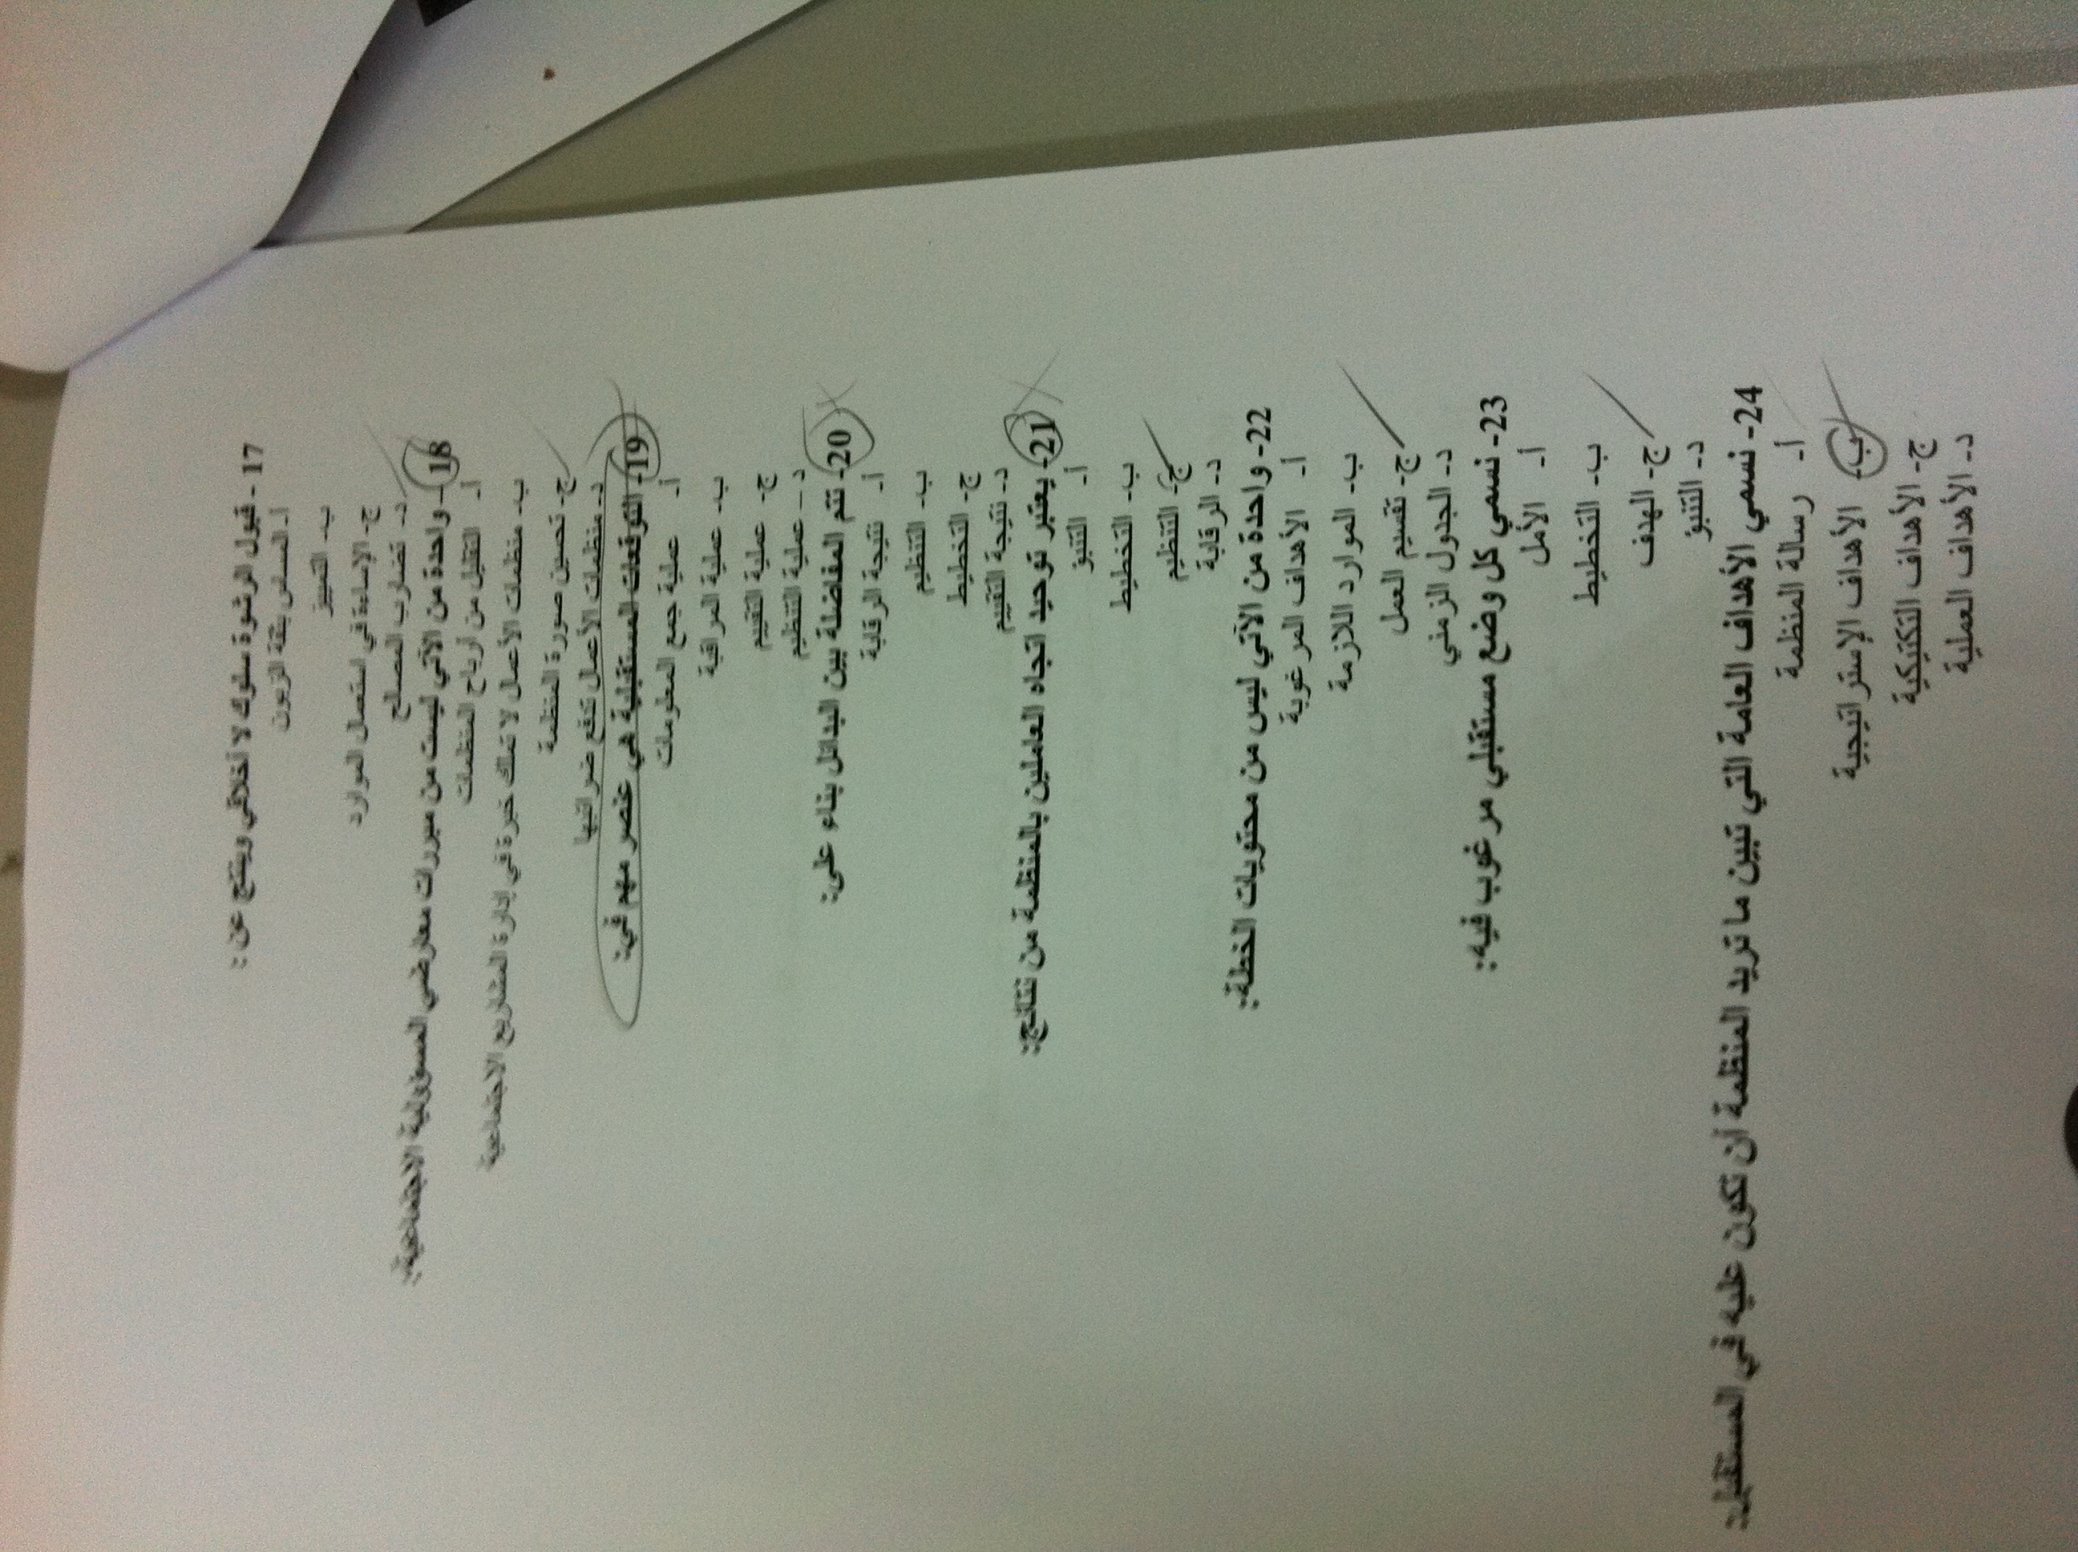 17- قبول الرشوة سلوك لا أخلاقي وينتج عن:
أ- المساس بثقة الزبون
ب- التمييز
ج- الإساءة في استعمال الموارد
د- تضارب المصالح
18- واحدة من الآتي ليست من مبررات معارضي المسؤولية الاجتماعية:
أ- التقليل من أرباح المنظمات
ب- منظمات الأعمال لا تملك خبرة في إدارة المشاريع الاجتماعية
ج- تحسين صورة المنظمة
د- منظمات الأعمال تدفع ضرائبها
19- التوقعات المستقبلية هي عنصر مهم في:
أ- عملية جمع المعلومات
ب- عملية المراقبة
ج- عملية التقييم
د- عملية التنظيم
20- تتم المفاضلة بين البدائل بناء على:
أ- نتيجة الرقابة
ب- التنظيم
ج- التخطيط
د- نتيجة التقييم
21- يعتبر توحيد اتجاه العاملين بالمنظمة من نتائج:
أ- التنبؤ
ب- التخطيط
ج- التنظيم
د- الرقابة
22- واحدة من الآتي ليس من محتويات الخطة:
أ- الأهداف المرغوبة
ب- الموارد اللازمة
ج- تقسيم العمل
د- الجدول الزمني
23- نسمي كل وضع مستقبلي مرغوب فيه:
أ- الأمل
ب- التخطيط
ج- الهدف
د- التنبؤ
24- نسمي الأهداف العامة التي تبين ما تريد المنظمة أن تكون عليه في المستقبل:
أ- رسالة المنظمة
ب- الأهداف الإستراتيجية
ج- الأهداف التكتيكية
د- الأهداف العملية